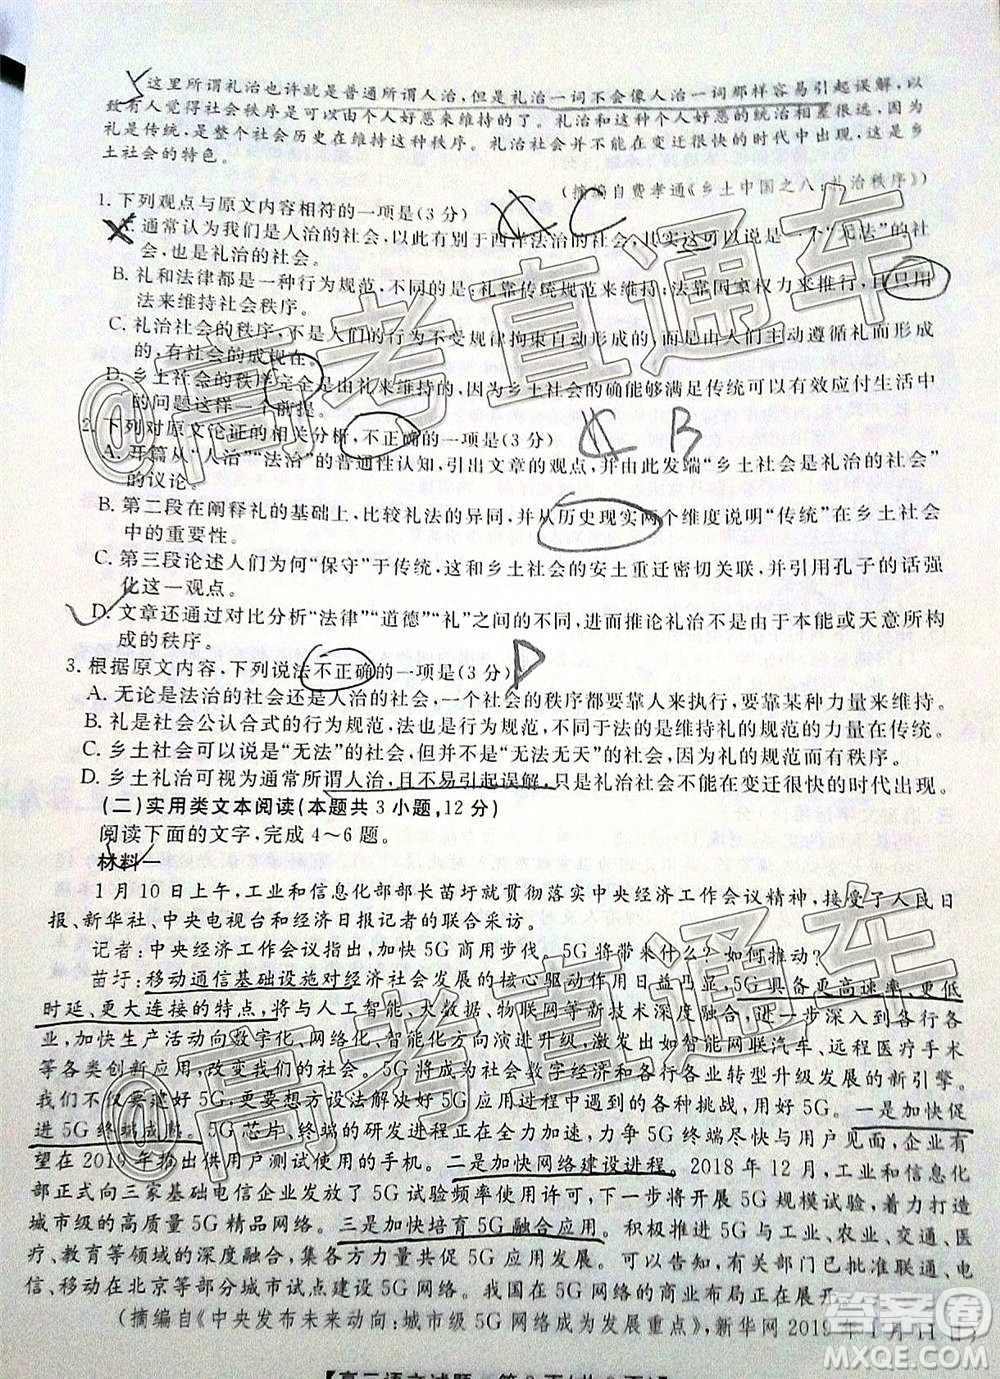 这里所谓礼治也许就是普通所谓人治,但是礼治一词不会像人治一词那样容易引起误解,以
致有人觉得社会秩序是可以由个人好恶来维持的了。礼治和这种个人好恶的统治相差很远,因为
礼是传统,是整个社会历史在维持这种秩序。礼治社会并不能在变迁很快的时代中出现,这是乡
土社会的特色。
(摘编自费孝通《乡土中国之八:礼治秩序》)
1. 下列观点与原文内容相符的一项是(3分)
C
A. 通常认为我们是人治的社会,以此有别于西洋法治的社会,其实这可以说是一个“无法”的社
会,是礼治的社会。
B. 礼和法律都是一种行为规范,不同的是:礼靠传统规范来维持;法靠国家权力来推行,且只用
法来维持社会秩序。
C. 礼治社会的秩序,不是人们的行为不受规律拘束自动形成的,而是由人们主动遵循礼而形成
的,有社会的成规在。
D. 乡土社会的秩序完全是由礼来维持的,因为乡土社会的确能够满足传统可以有效应付生活中
的问题这样一个前提。
2. 下列对原文论证的相关分析,不正确的一项是(3分)
B
A. 开篇从“人治”“法治”的普通性认知,引出文章的观点,并由此发端“乡土社会是礼治的社会”
的议论。
B. 第二段在阐释礼的基础上,比较礼法的异同,并从历史现实两个维度说明“传统”在乡土社会
中的重要性。
C. 第三段论述人们为何“保守”于传统,这和乡土社会的安土重迁密切关联,并引用孔子的话强
化这一观点。
D. 文章还通过对比分析“法律”“道德”“礼”之间的不同,进而推论礼治不是由于本能或天意所构
成的秩序。
3. 根据原文内容,下列说法不正确的一项是(3分)
D
A. 无论是法治的社会还是人治的社会,一个社会的秩序都要靠人来执行,要靠某种力量来维持。
B. 礼是社会公认合式的行为规范,法也是一种行为规范,不同于法的是维持礼的力量在传统。
C. 乡土社会可以说是“无法”的社会,但并不是“无法无天”的社会,因为乡土社会有礼治秩序。
D. 礼治可视为通常所谓人治,且不易引起误解,但礼治社会不能在变迁很快的时代出现。
(二)实用类文本阅读(本题共3小题,12分)
阅读下面的文字,完成4~6题。
材料一
1月10日上午,工业和信息化部部长苗圩就贯彻落实中央经济工作会议精神,接受了人民日
报、新华社、中央电视台和经济日报记者的联合采访。
记者:中央经济工作会议指出,加快5G商用步伐。5G将带来什么?如何推动?
苗圩:移动通信基础设施对经济社会发展的核心驱动作用日益凸显,5G具备更高速率、更低
时延、更大连接的特点,将与人工智能、大数据、物联网等新技术深度融合,推动企业、行业
业,加快生产活动向数字化、网络化、智能化方向演进升级,激发出如智能网联汽车、远程医疗手术
等各类创新应用,5G将成为社会数字经济和各行各业转型升级发展的新引擎。
我们不仅要建好5G,更要想方设法解决5G应用过程中遇到的各种挑战,用好5G。一是加快促
进5G终端成熟。5G芯片、终端的研发进程正在全力加速,力争5G终端尽快与用户见面,企业有
望在2019年推出供用户测试使用的手机。二是加快网络建设进程。2018年12月,工业和信息化
部正式向三家基础电信企业发放了5G试验频率使用许可,下一步将开展5G规模试验,着力打造
城市级的高质量5G精品网络。三是加快培育5G融合应用。积极推进5G与工业、农业、交通、医
疗、教育等领域的深度融合,集各方力量共同促进5G应用发展。目前,有关部门会同电信、联
信、移动在北京等部分城市试点建设5G网络。我国在5G网络的商业布局正在展开。
(摘编自《中央发布未来动向:城市级5G网络成为发展重点》,新华网2019年1月11日)
@高考直通车
@高考直通车
答案圈
MXQE.COM